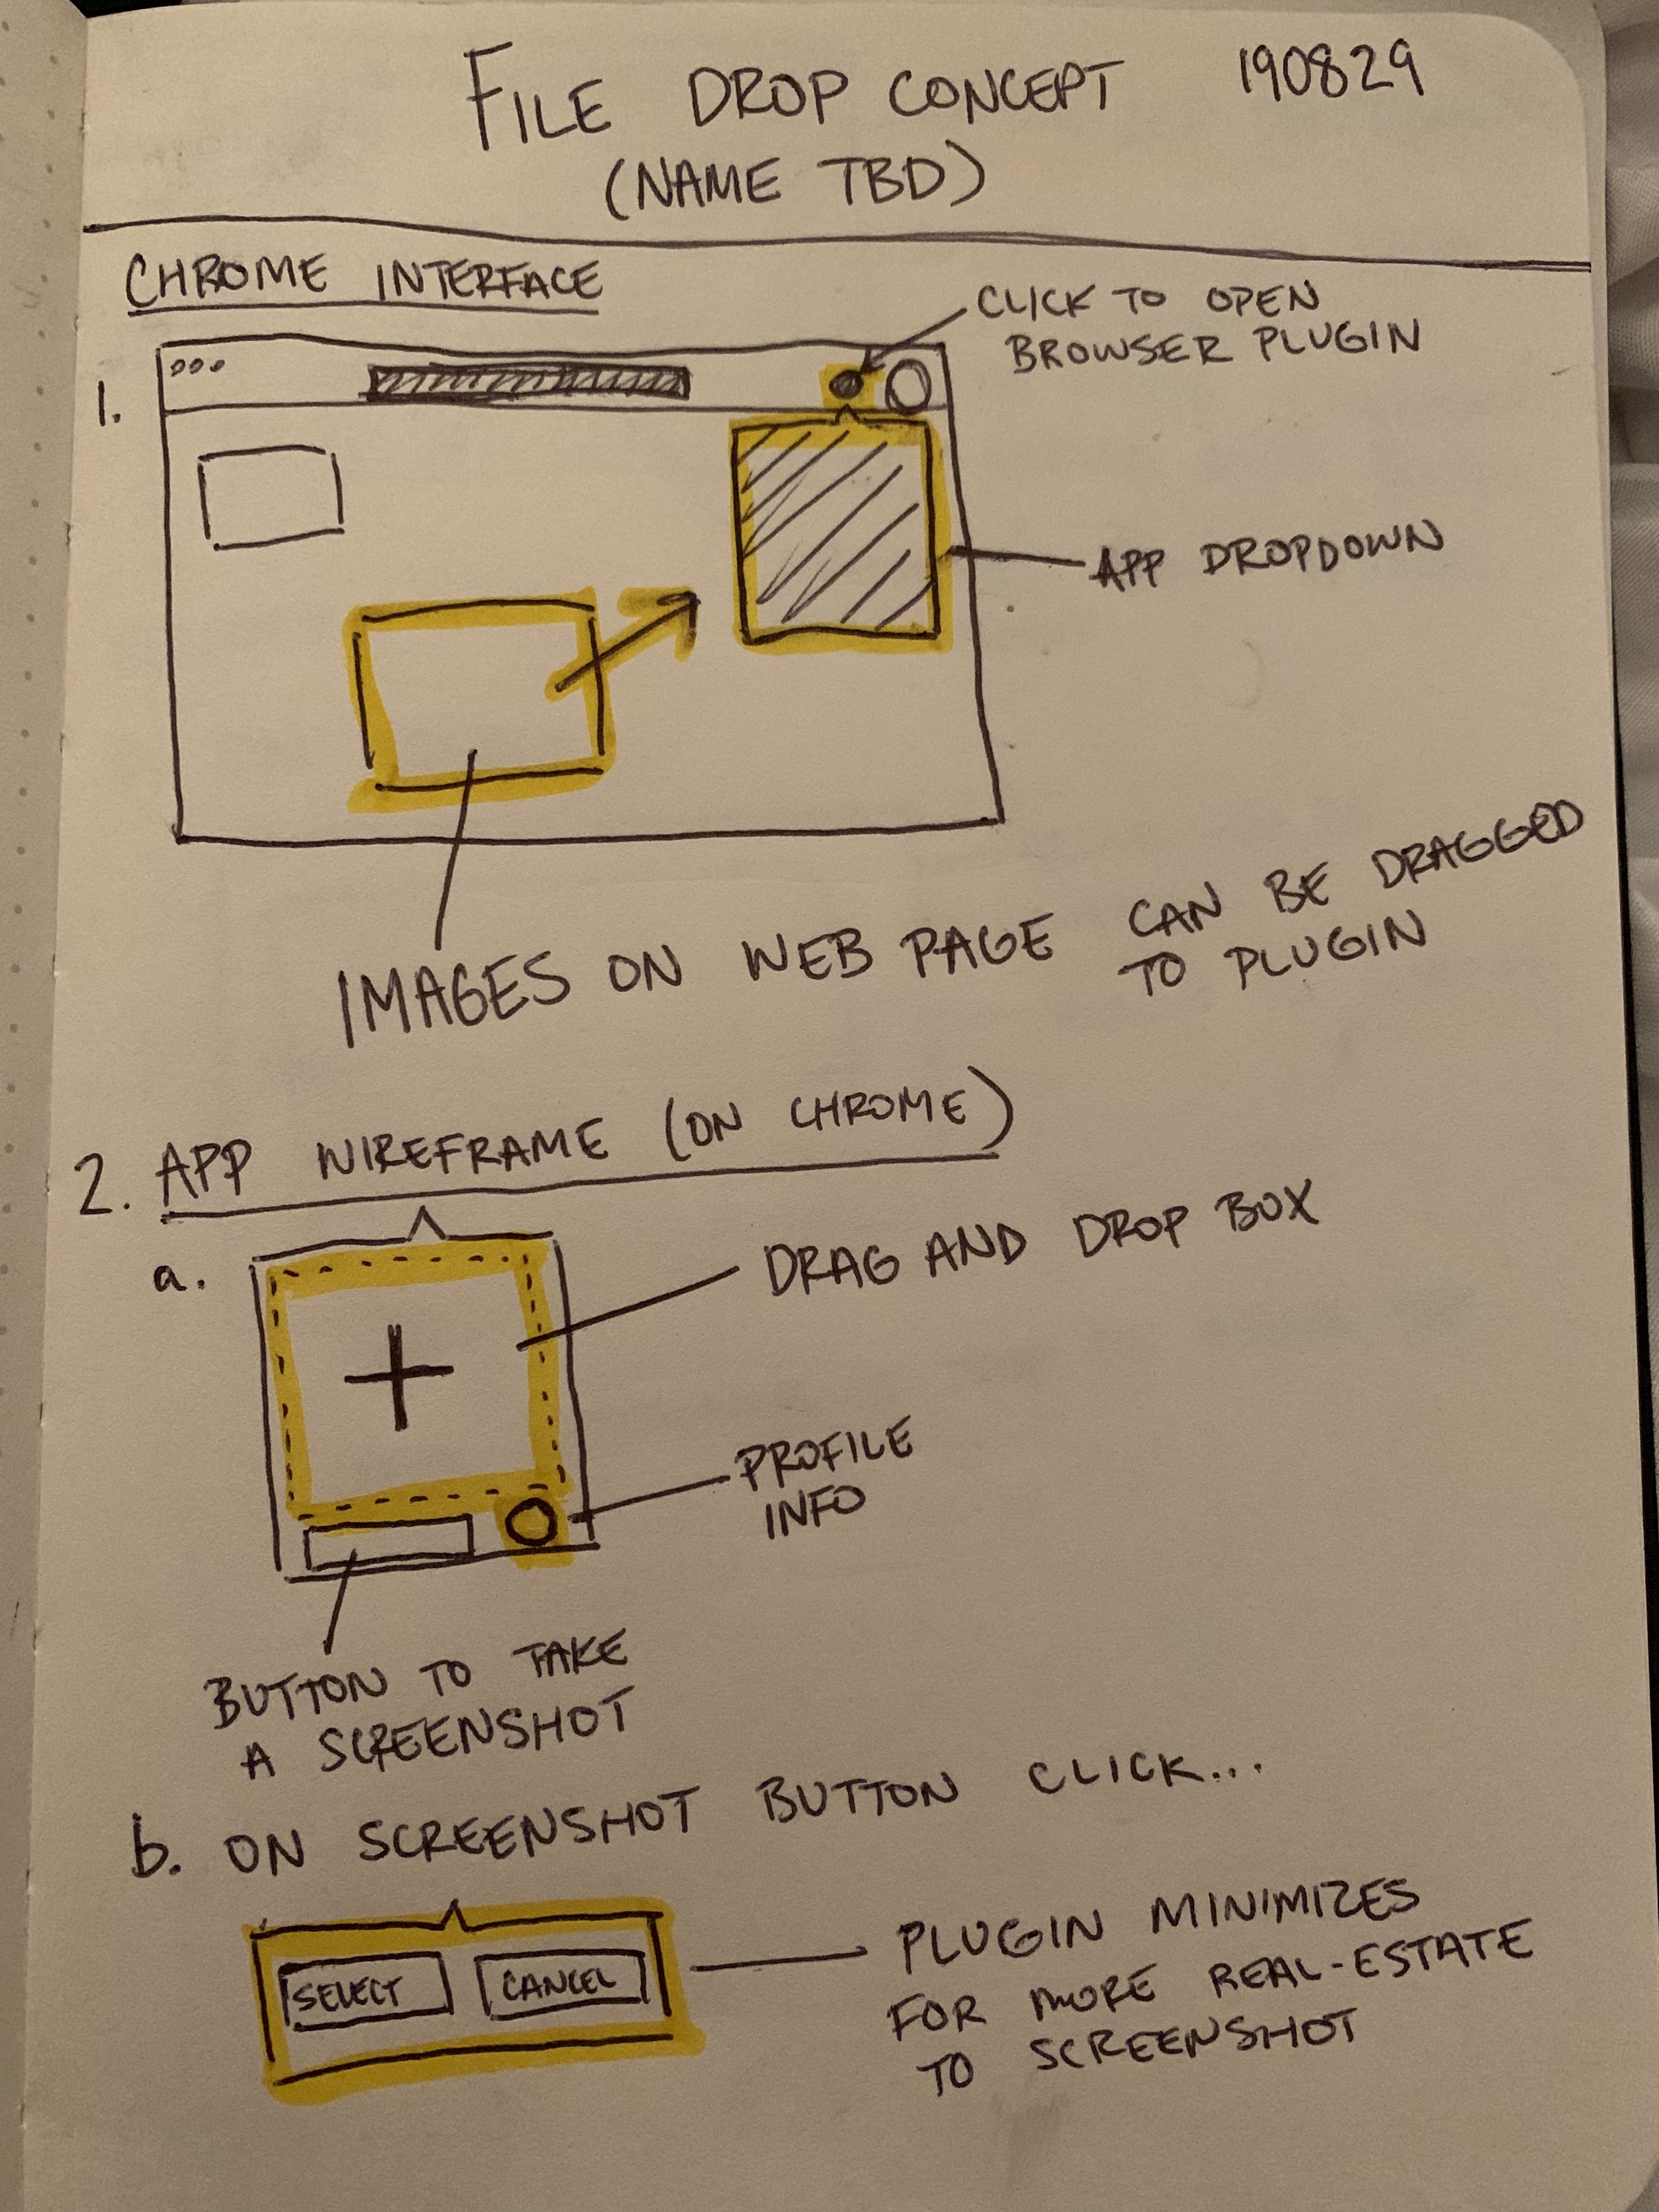 FILE DROP CONCEPT 190829
(NAME TBD)
CHROME INTERFACE
CLICK TO OPEN
BROWSER PLUGIN
1.
APP DROPDOWN
IMAGES ON WEB PAGE CAN BE DRAGGED
TO PLUGIN
2. APP WIREFRAME (ON CHROME)
a.
DRAG AND DROP BOX
PROFILE
INFO
BUTTON TO TAKE
A SCREENSHOT
b. ON SCREENSHOT BUTTON CLICK...
SELECT CANCEL
PLUGIN MINIMIZES
FOR MORE REAL-ESTATE
TO SCREENSHOT